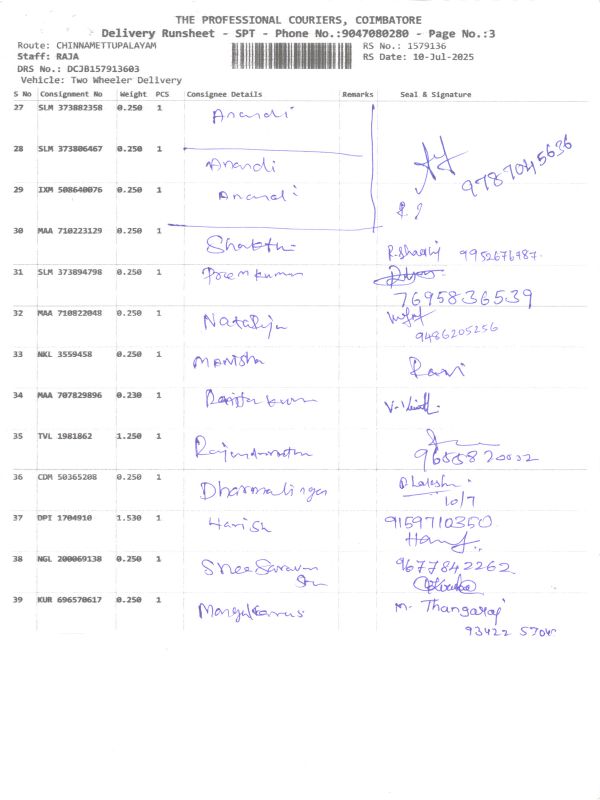 THE PROFESSIONAL COURIERS, COIMBATORE
Delivery Runsheet - SPT - Phone No.:9047080280 - Page No.:3
Route: CHINNAMETTUPALAYAM RS No.: 1579136
Staff: RAJA RS Date: 10-Jul-2025
DRS No.: DCJB157913603
Vehicle: Two Wheeler Delivery
S No Consignment No Weight PCS Consignee Details Remarks Seal & Signature
27 SLM 373882358 0.250 1 Anandi
28 SLM 373806467 0.250 1 Anandi 9787045636
29 IXM 508640076 0.250 1 Anandi
30 MAA 710223129 0.250 1 Shakthi 9952676987
31 SLM 373894798 0.250 1 Premkumar 7695836539
32 MAA 710822048 0.250 1 Nataraju 9486205256
33 NKL 3559458 0.250 1 Manisha Ravi
34 MAA 707829896 0.230 1
35 TVL 1981862 1.250 1 9655820032
36 CDM 50365208 0.250 1 Dharmalingam 10/7
37 DPI 1704910 1.530 1 Harish 9159710350
38 NGL 200069138 0.250 1 Shee Saravan 9677842262
39 KUR 696570617 0.250 1 M. Thangaraj
93422 5704